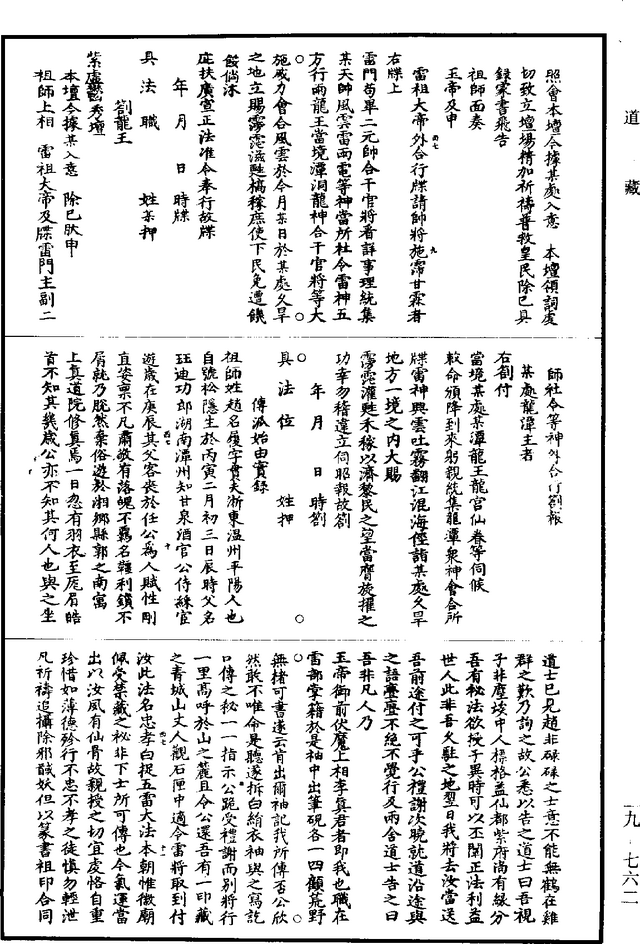 道藏
照會本壇今據某處入意　本壇領詞虔
切致立壇場精加祈禱普救皇民除已具
錄奏書飛告
祖師面奏
玉帝及申
雷祖大帝外合行牒請帥將施霈甘霖者
右牒上
雷門苟畢二元帥合干官將看詳事理統集
某天帥風雲雷雨電等神當所社令雷神五
方行雨龍王當境潭洞龍神合干官將等大
施威力會合風雲於今月某日於某處久旱
之地立賜霶霈滋甦槁稼庶使下民免遭饑
餒倘沐
庇扶廣宣正法准令奉行故牒
年　月　日　時牒
具法職　姓某押
劄龍王
紫虛鬱秀壇
本壇今據某入意　除已狀申
祖師上相　雷祖大帝及牒雷門主副二
師社令等神外合行劄報
某處龍潭主者
右劄付
當境某處某潭龍王龍宮仙眷等伺候
敕命頒降到來躬親統集龍潭衆神會合所
牒雷神興雲吐霧翻江混海徑詣某處久旱
地方一境之內大賜
霶霈灌甦禾稼以濟黎民之望當膺旋擢之
功幸勿稽違立伺昭報故劄
年　月　日　時劄
具法位　姓押
傳派始由實錄
祖師姓趙名履字會夫浙東溫州平陽人也
自號松隱生於丙寅二月初三日辰時父名
玨迪功郎湖南潭州知甘泉酒官公侍綵宦
遊歲在庚辰其父客喪於任公爲人賦性剛
直姿稟不凡肅敬有落魄不羈名韁利鎖不
屑就乃脫然棄俗遊於湘鄉縣郭之南寓
上真道院修真焉一日忽有羽衣至厖眉皓
首不知其幾歲公亦不知其何人也與之坐
道士已見趙非碌碌之士意不能無鶴在雞
群之歎乃詢之故公悉以告之道士曰吾視
子非塵垓中人標格蓋仙都紫府尚有緣分
吾有秘法欲授子異時可以丕闡正法利益
世人此非吾久駐之地翌日我將去汝當送
吾前途付之可乎公禮謝次晚就道沿途與
之語亹亹不絕不覺行及兩舍道士告之曰
吾非凡人乃
玉帝御前伏魔上相李真君者即我也職在
雷部掌籍於是袖中出筆硯各一四顧荒野
無楮可書遂云首出爾袖記我所傳否公欣
然敢不唯命是聽遂拆白絹衣袖與之寫訖
口傳之秘一一指示公跪受禮謝而別將行
一里高呼於山之麓且令公還吾有一印藏
之青城山丈人觀石匣中適令雷將取到付
汝此法名忠孝白捉五雷大法本朝惟徽廟
佩受禁藏之秘非下士所可傳也今氣運當
出以汝夙有仙骨故親授之切宜處恪自重
珍惜如薄德殄行不忠不孝之徒慎勿輕泄
凡祈禱追攝除邪馘妖但以篆書祖印合同
一九·七六二